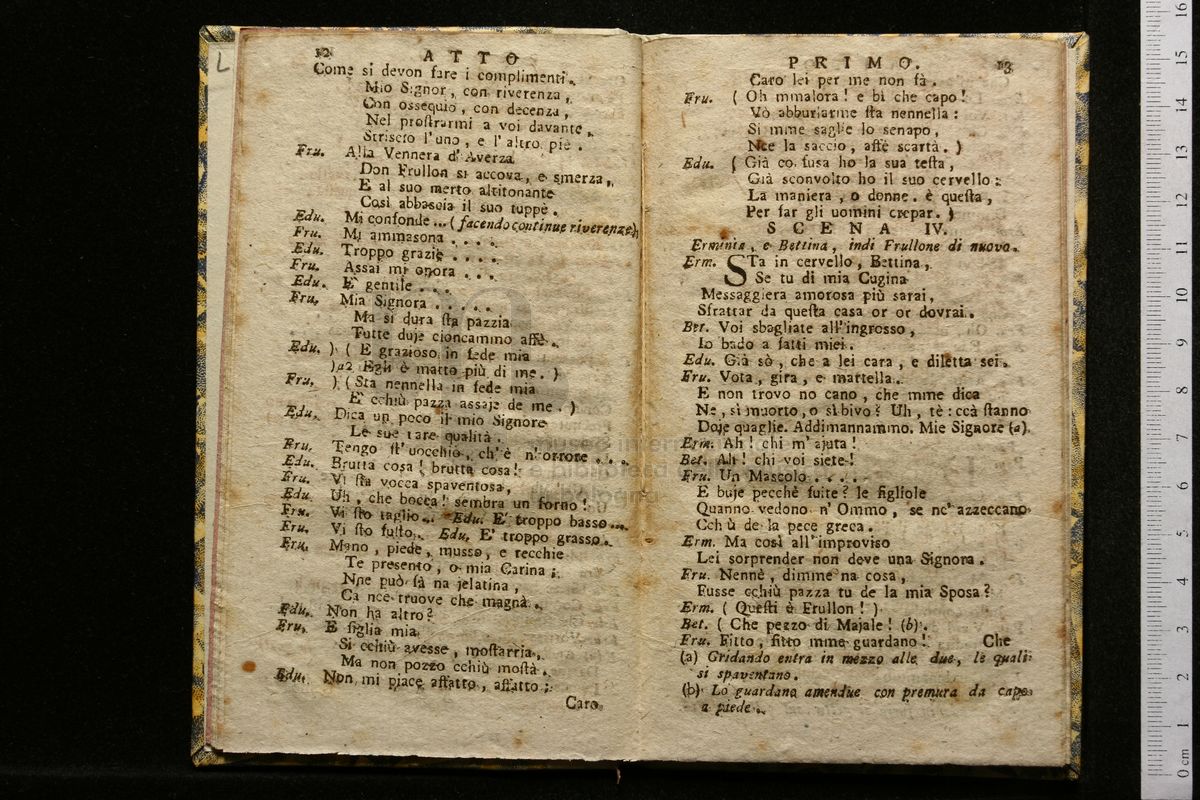 L
12 ATTO
Come si devon fare i complimenti.
Mio Signor, con riverenza,
Con ossequio, con decenza,
Nel prostrarmi a voi davante,
Striscio l'uno, e l'altro piè.
Fru. Alla Vennera d'Averza
Don Frullon si accova, e smerza,
E al suo merto altitonante
Così abbassia il suo tuppè.
Edu. Mi confonde... (facendo continue riverenze)
Fru. Mi ammasona . . . .
Edu. Troppo grazie . . . .
Fru. Assai mi onora . . .
Edu. E' gentile . . .
Fru. Mia Signora . . . . .
Ma si dura sta pazzia
Tutte duje cioncammo affè.
Edu. ) ( E grazioso in fede mia
)a2 Egli è matto più di me. )
Fru. ) (Sta nennella in fede mia
E' cchiù pazza assaje de me. )
Edu. Dica un poco il mio Signore
Le sue rare qualità.
Fru. Tengo st'uocchio, ch'è n'orrore . . . .
Edu. Brutta cosa! brutta cosa!
Fru. Vi sta vocca spaventosa,
Edu. Uh, che bocca! sembra un forno!
Fru. Vi sto taglio... Edu. E' troppo basso...
Fru. Vi sto fusto.. Edu. E' troppo grasso.
Fru. Mano, piede, musso, e recchie
Te presento, o mia Carina;
Nne può fà na jelatina,
Ca nce truove che magnà.
Edu. Non ha altro?
Fru. E figlia mia
Si cchiù avesse, mostarria,
Ma non pozzo cchiù mostà.
Edu. Non mi piace affatto, affatto;
Caro
PRIMO. 13
Caro lei per me non fà.
Fru. ( Oh mmalora! e bì che capo!
Vò abburlarme sta nennella:
Si mme saglie lo senapo,
Nce la saccio, affè scartà. )
Edu. ( Già confusa ho la sua testa,
Già sconvolto ho il suo cervello:
La maniera, o donne, è questa,
Per far gli uomini crepar. )
SCENA IV.
Erminia, e Bettina, indi Frullone di nuovo.
Erm. STa in cervello, Bettina,
Se tu di mia Cugina
Messaggiera amorosa più sarai,
Sfrattar da questa casa or or dovrai.
Bet. Voi sbagliate all'ingrosso,
Io bado a fatti miei.
Edu. Già sò, che a lei cara, e diletta sei.
Fru. Vota, gira, e martella.
E non trovo no cano, che mme dica
Ne, sì muorto, o sì bivo? Uh, tè: ccà stanno
Doje quaglie. Addimannammo. Mie Signore (a).
Erm. Ah! chi m'ajuta!
Bet. Ah! chi voi siete!
Fru. Un Mascolo . . . .
E buje pecchè fuite? le figliole
Quanno vedono n'Ommo, se nc'azzeccano
Cchiù de la pece greca.
Erm. Ma così all'improviso
Lei sorprender non deve una Signora.
Fru. Nennè, dimme na cosa,
Fusse cchiù pazza tu de la mia Sposa?
Erm. ( Questi è Frullon! )
Bet. ( Che pezzo di Majale! (b).
Fru. Fitto, fitto mme guardano! Che
(a) Gridando entra in mezzo alle due, le quali
si spaventano.
(b) Lo guardano amendue con premura da capo
a piede.